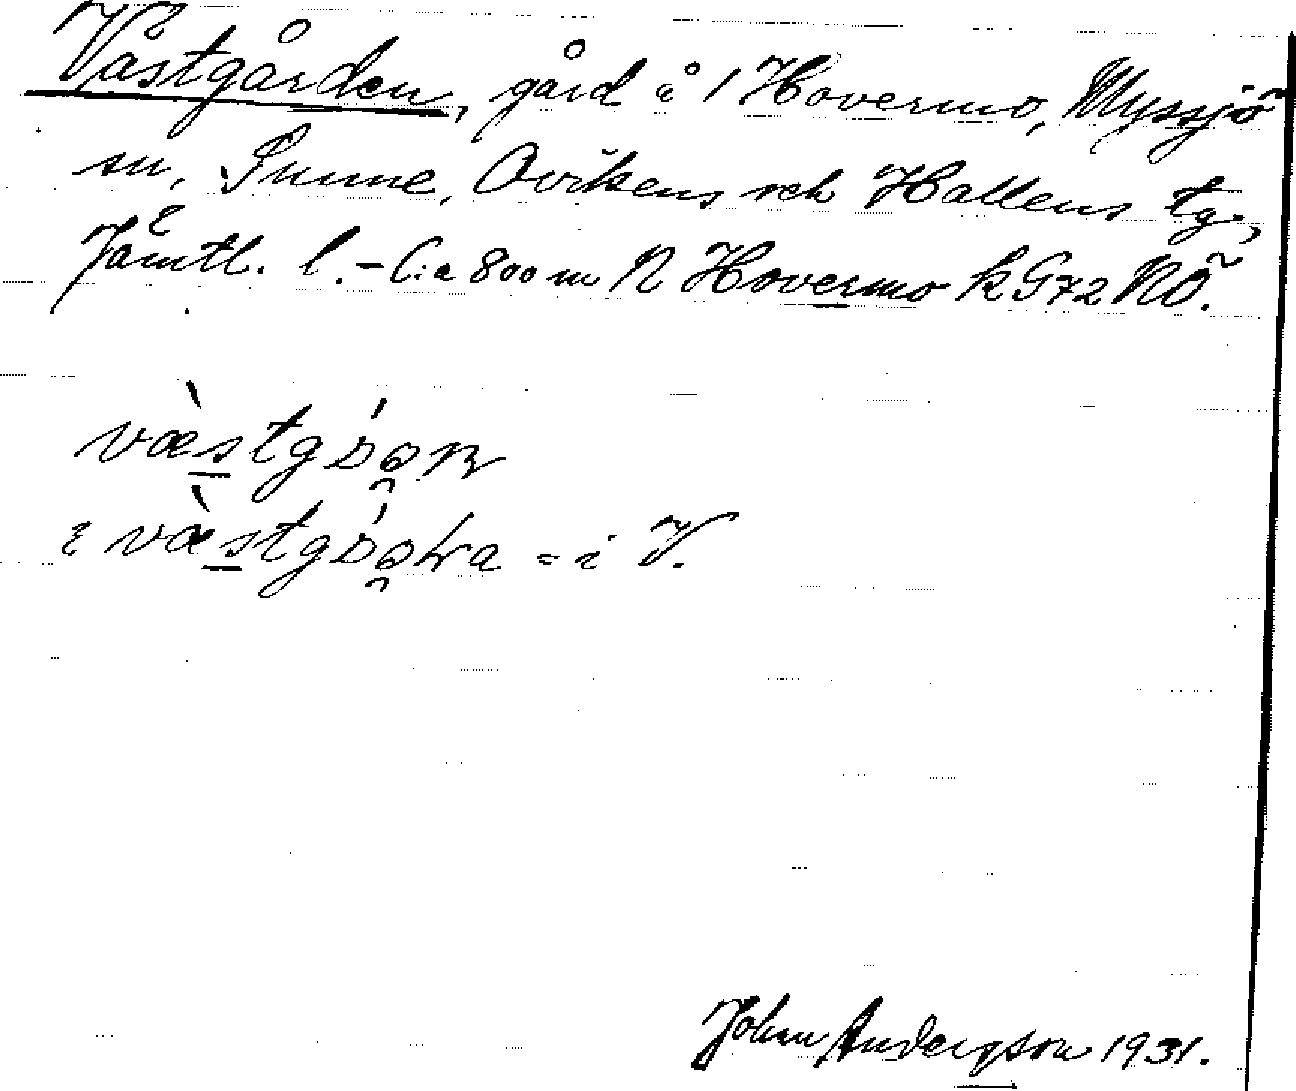 Västgården, gård å 1 Hovermo, Myssjö
sn, Sunne, Ovikens och Hallens tg,
Jämtl. l. – C:a 800 m N Hovermo k G72 NÖ.
= i V.
Johan Andersson 1931.